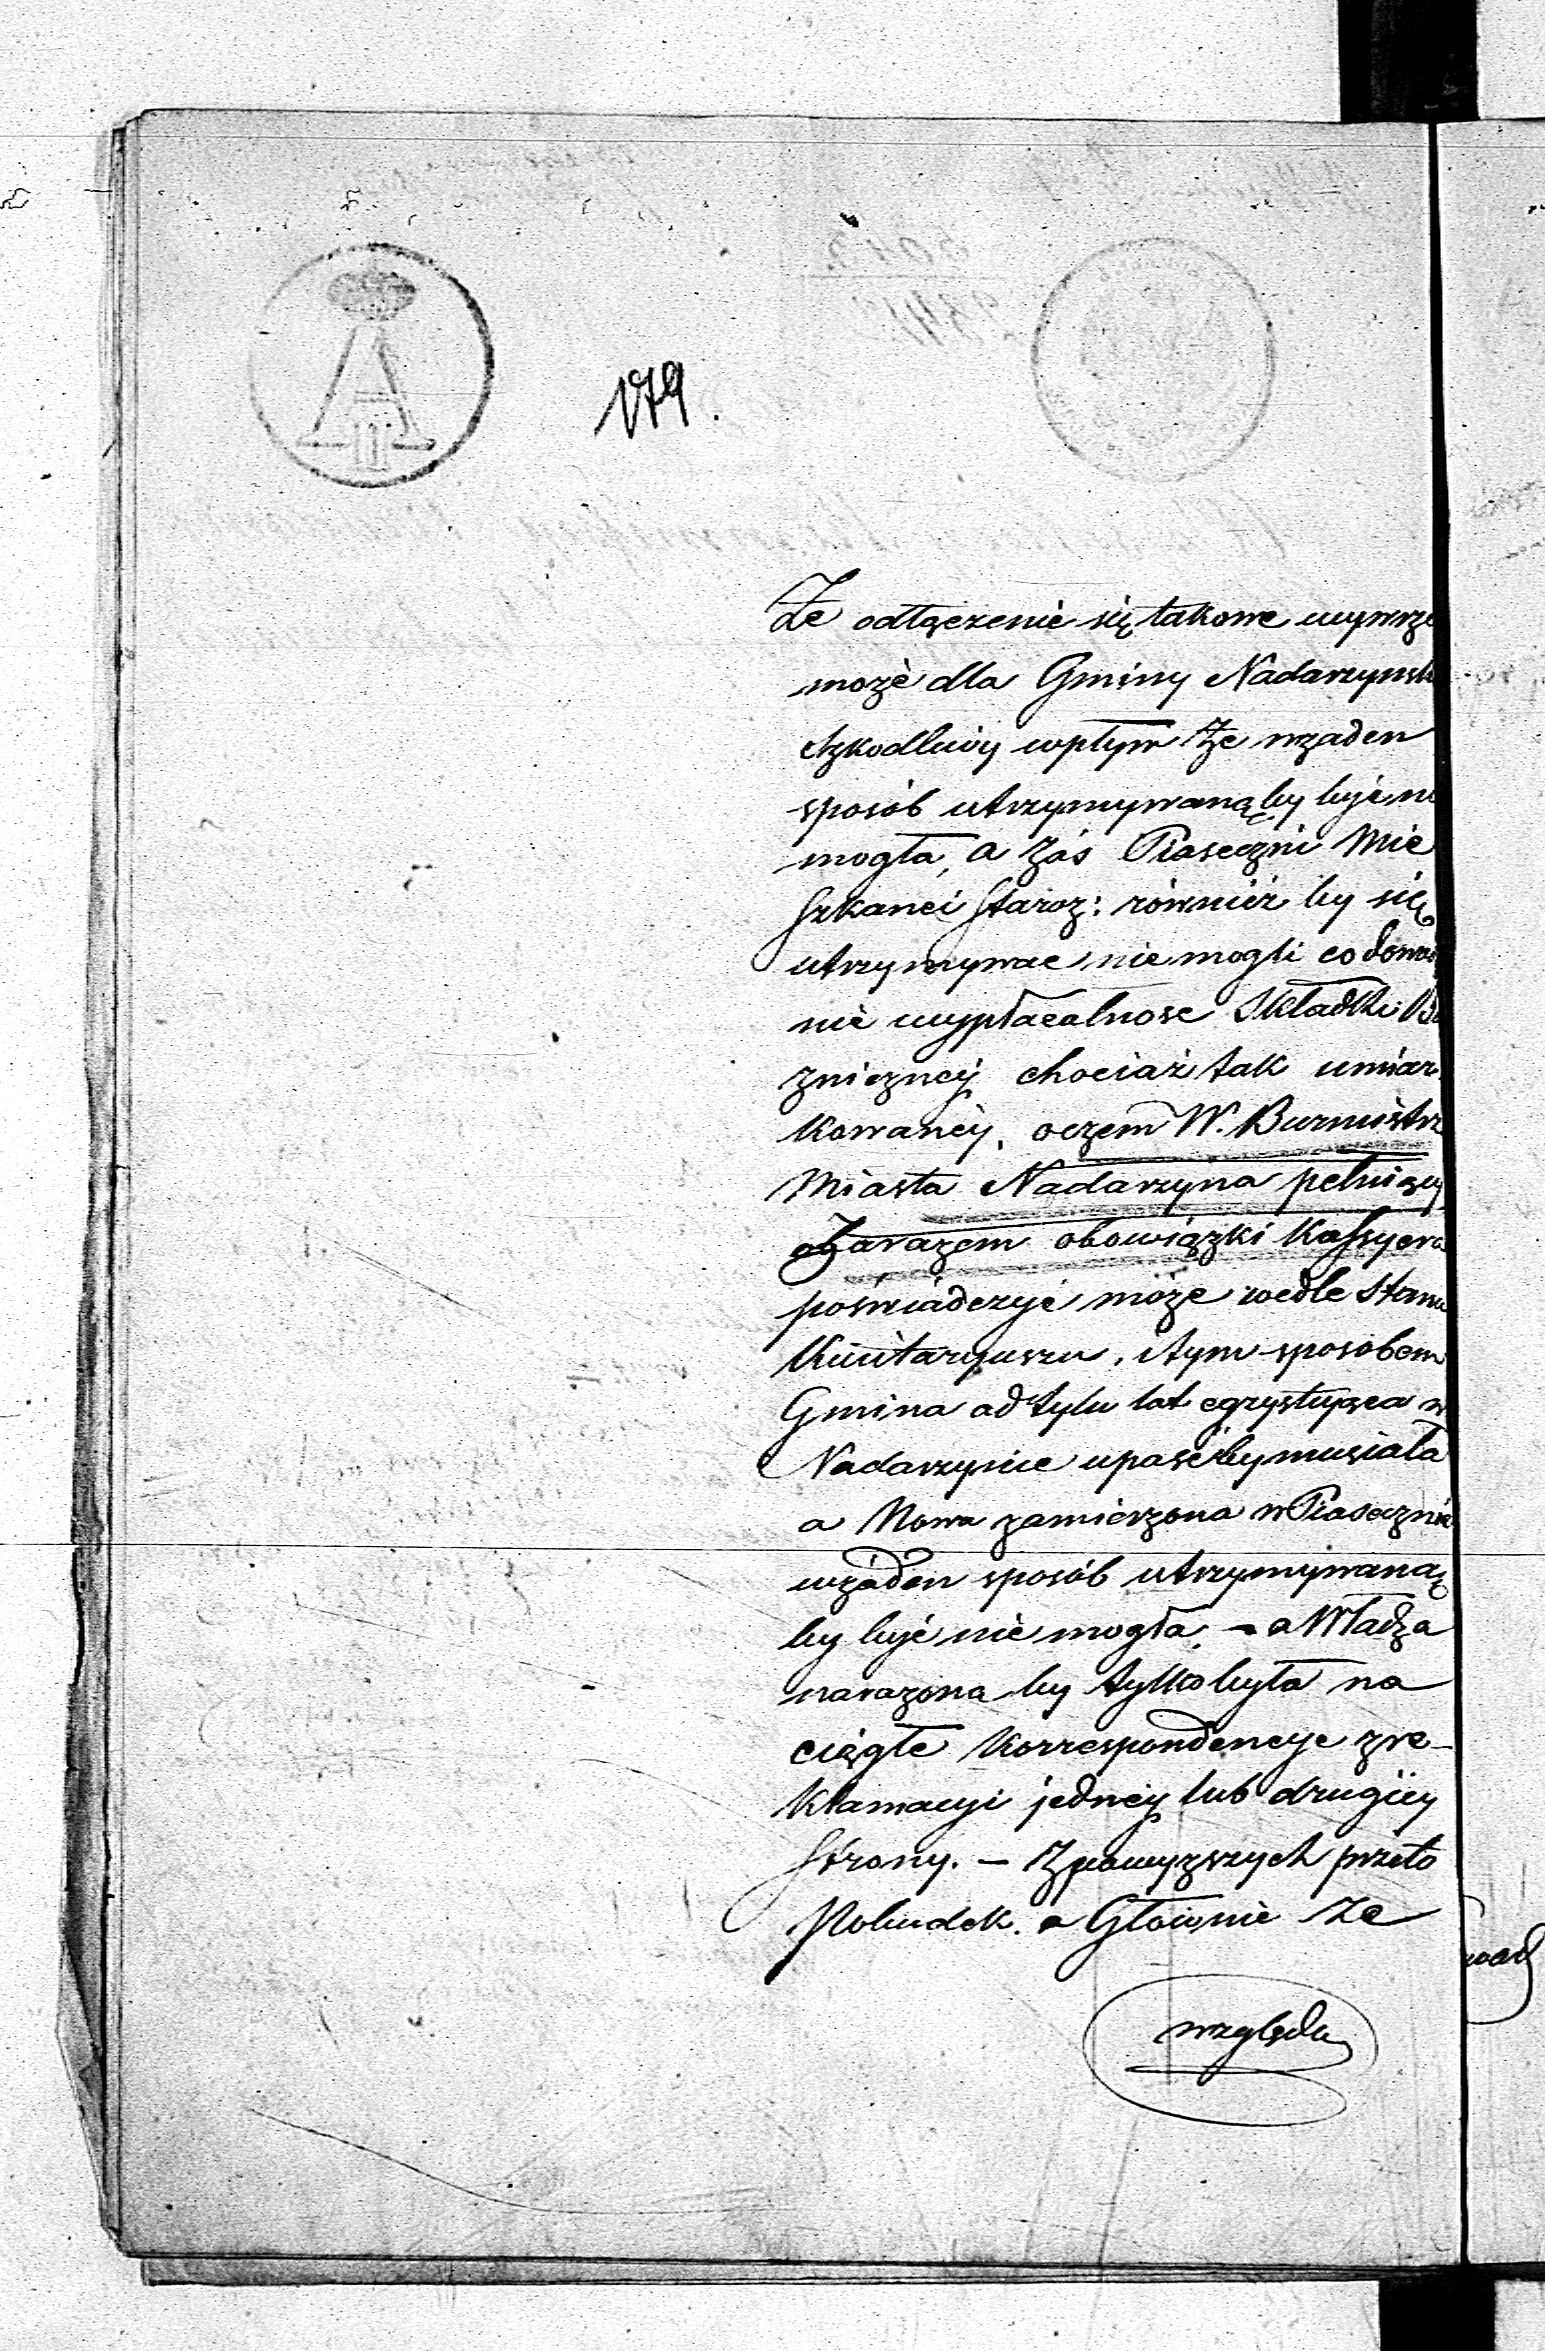 179.
Że odłączenie się takowe wywrze
może dla Gminy Nadarzynsk
szkodliwy wpływ że wżaden
sposób utrzymywaną by byc ni
mogła, a zaś Piaseczni Mie
szkanci Staroz: również by się
utrzymywac nie mogli co dowo
nie wypłacalnosc Składki Bo
zniczney chociaż tak umiar
kowaney, oczem W. Burmistrz
Miasta Nadarzyna pełniący
zarazem obowiązki Kassyera
poświadczyć może wedle Stanu
Kwitaryuszu, tym sposobem
Gmina od tylu lat egzystująca w
Nadarzynie upaść by musiała
a Nowa zamierzona w Piasecznie
wżaden sposób utrzymywaną
by być nie mogła. – a Władza
narazona by tylko była na
ciągłe korrespondencye zre-
klamacyi jedney lub drugiey
Strony. – Z powyzszych przeto
Pobudek. a Głównie ze
względu